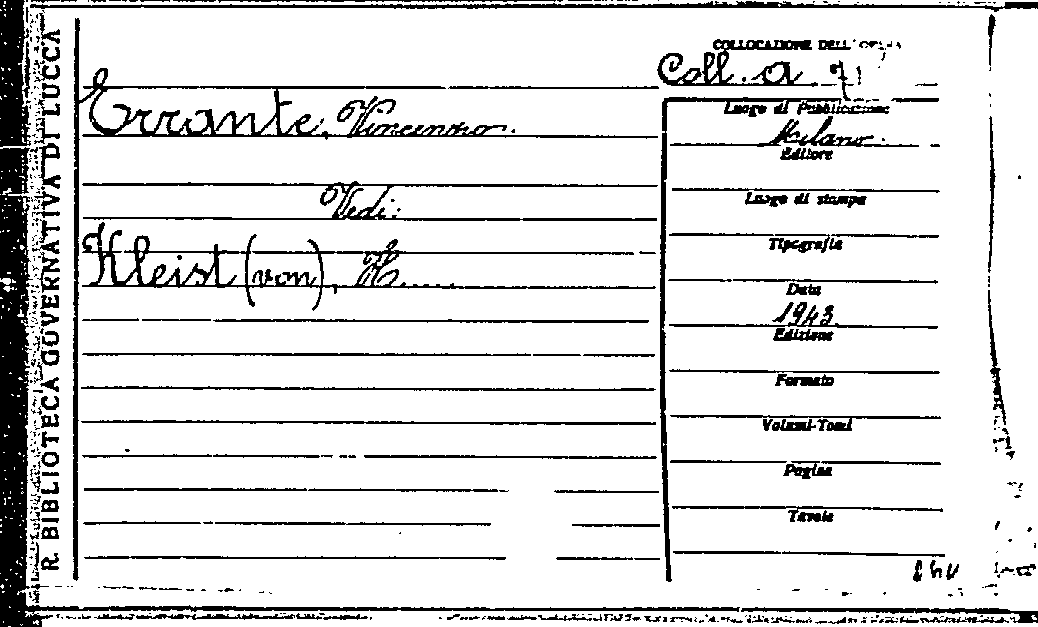 R. BIBLIOTECA GOVERNATIVA DI LUCCA
COLLOCAZIONE DELL'OPERA
Coll. a 71
Errante, Vincenzo.
Vedi:
Kleist (von), H.....
Luogo di Pubblicazione
Milano.
Editore
Luogo di stampa
Tipografia
Data
1943
Edizione
Formato
Volumi-Tomi
Pagine
Tavole